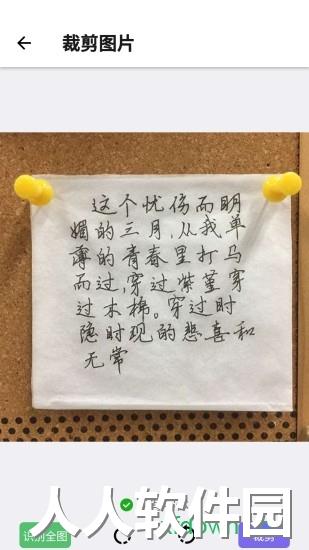 裁剪图片
这个忧伤而明
媚的三月,从我单
薄的青春里打马
而过,穿过紫堇穿
过木棉。穿过时
隐时现的悲喜和
无常
人人软件园
识别全图
裁剪